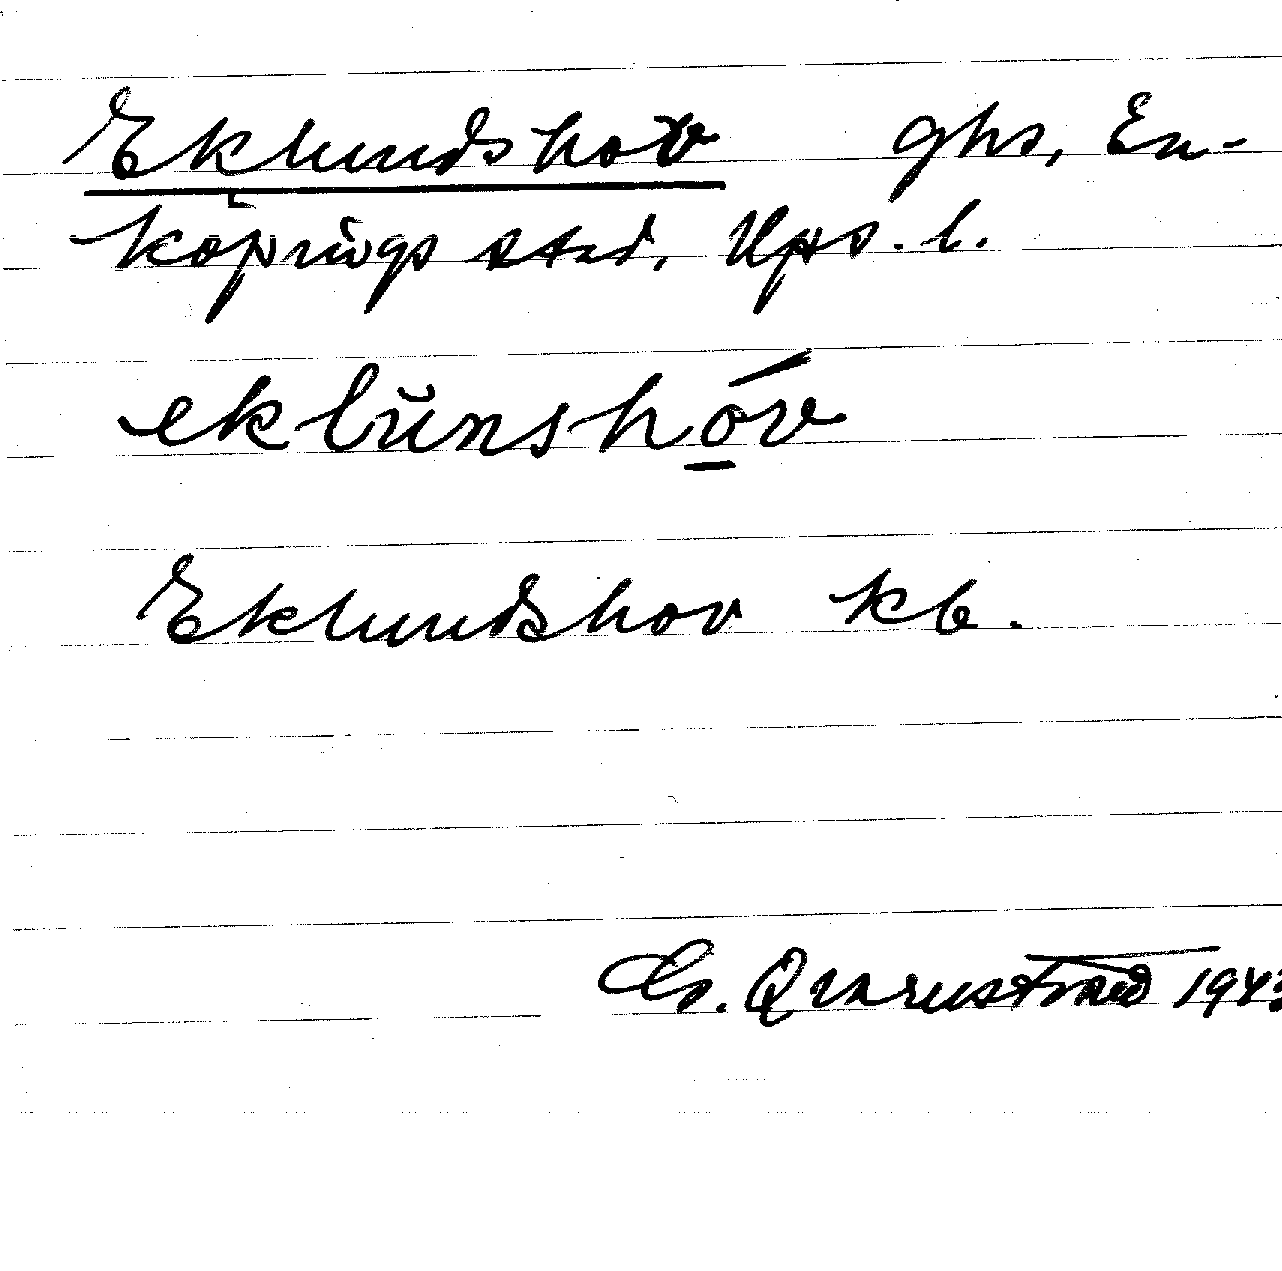 Eklundshov ghs, En-
köpings stad, Ups. l.
eklunshóv
Eklundshov kb.
Qvarnstrand